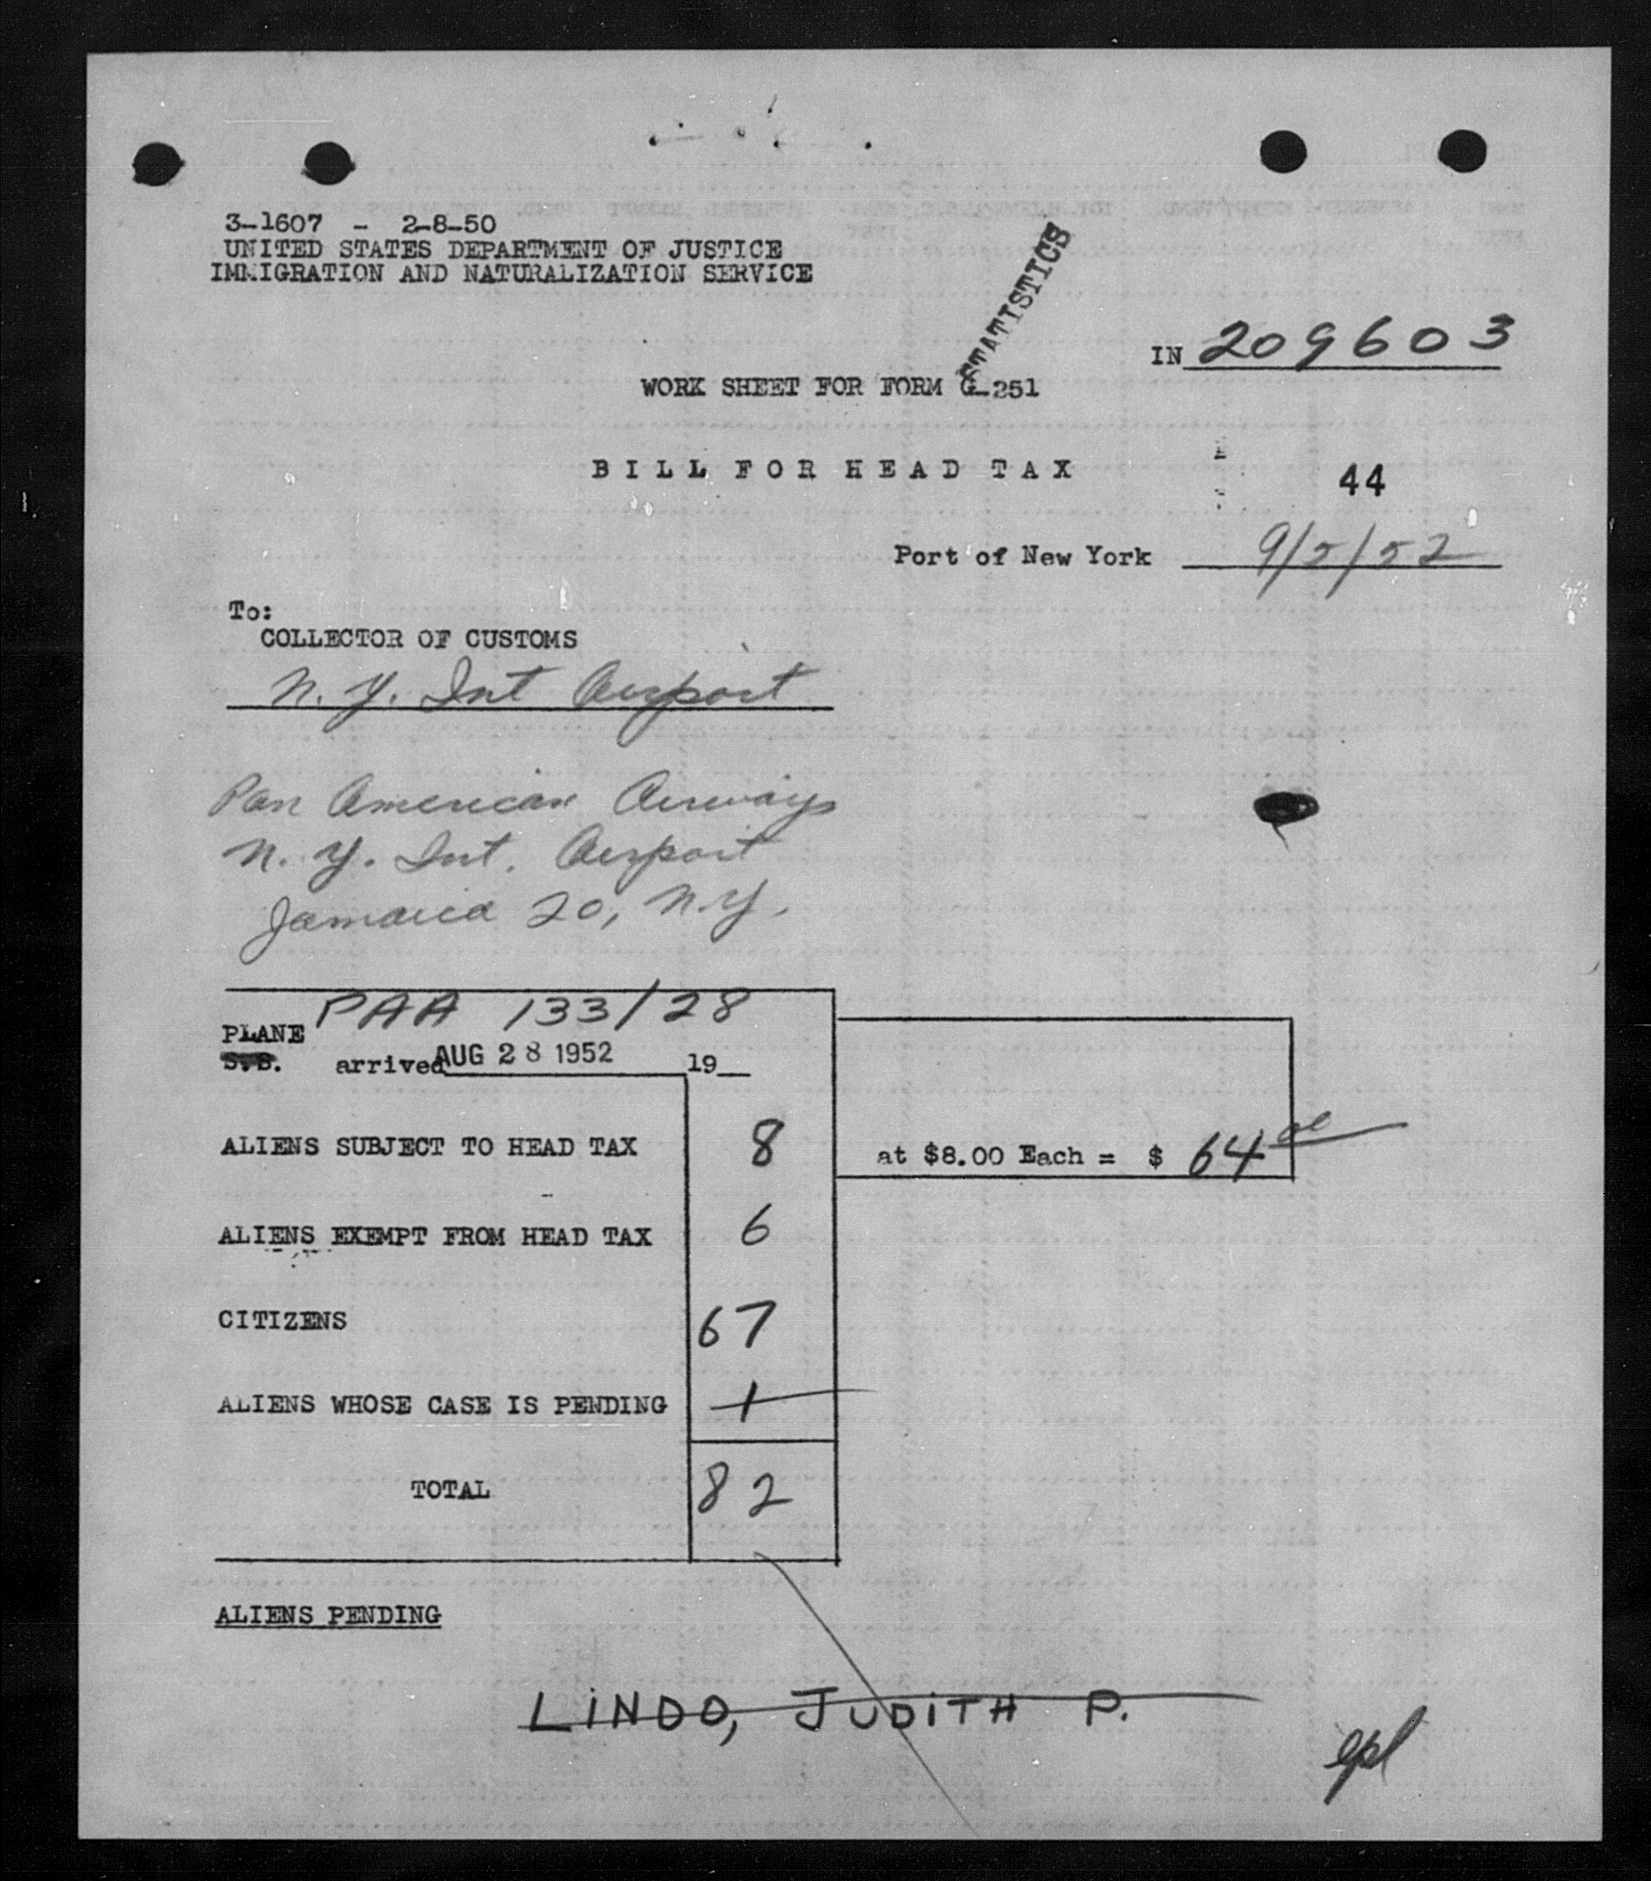 3-1607 - 2-8-50
UNITED STATES DEPARTMENT OF JUSTICE
IMMIGRATION AND NATURALIZATION SERVICE
STATISTICS
IN 209603
WORK SHEET FOR FORM G-251
BILL FOR HEAD TAX
44
Port of New York 9/5/52
To:
COLLECTOR OF CUSTOMS
N. Y. Int Airport
Pan American Airways
N. Y. Int. Airport
Jamaica 20, N.Y.
PAA 133/28
PLANE
S.S. arrived AUG 28 1952 19__
ALIENS SUBJECT TO HEAD TAX 8 at $8.00 Each = $ 64
ALIENS EXEMPT FROM HEAD TAX 6
CITIZENS 67
ALIENS WHOSE CASE IS PENDING 1
TOTAL 82
ALIENS PENDING
LINDO, JUDITH P.